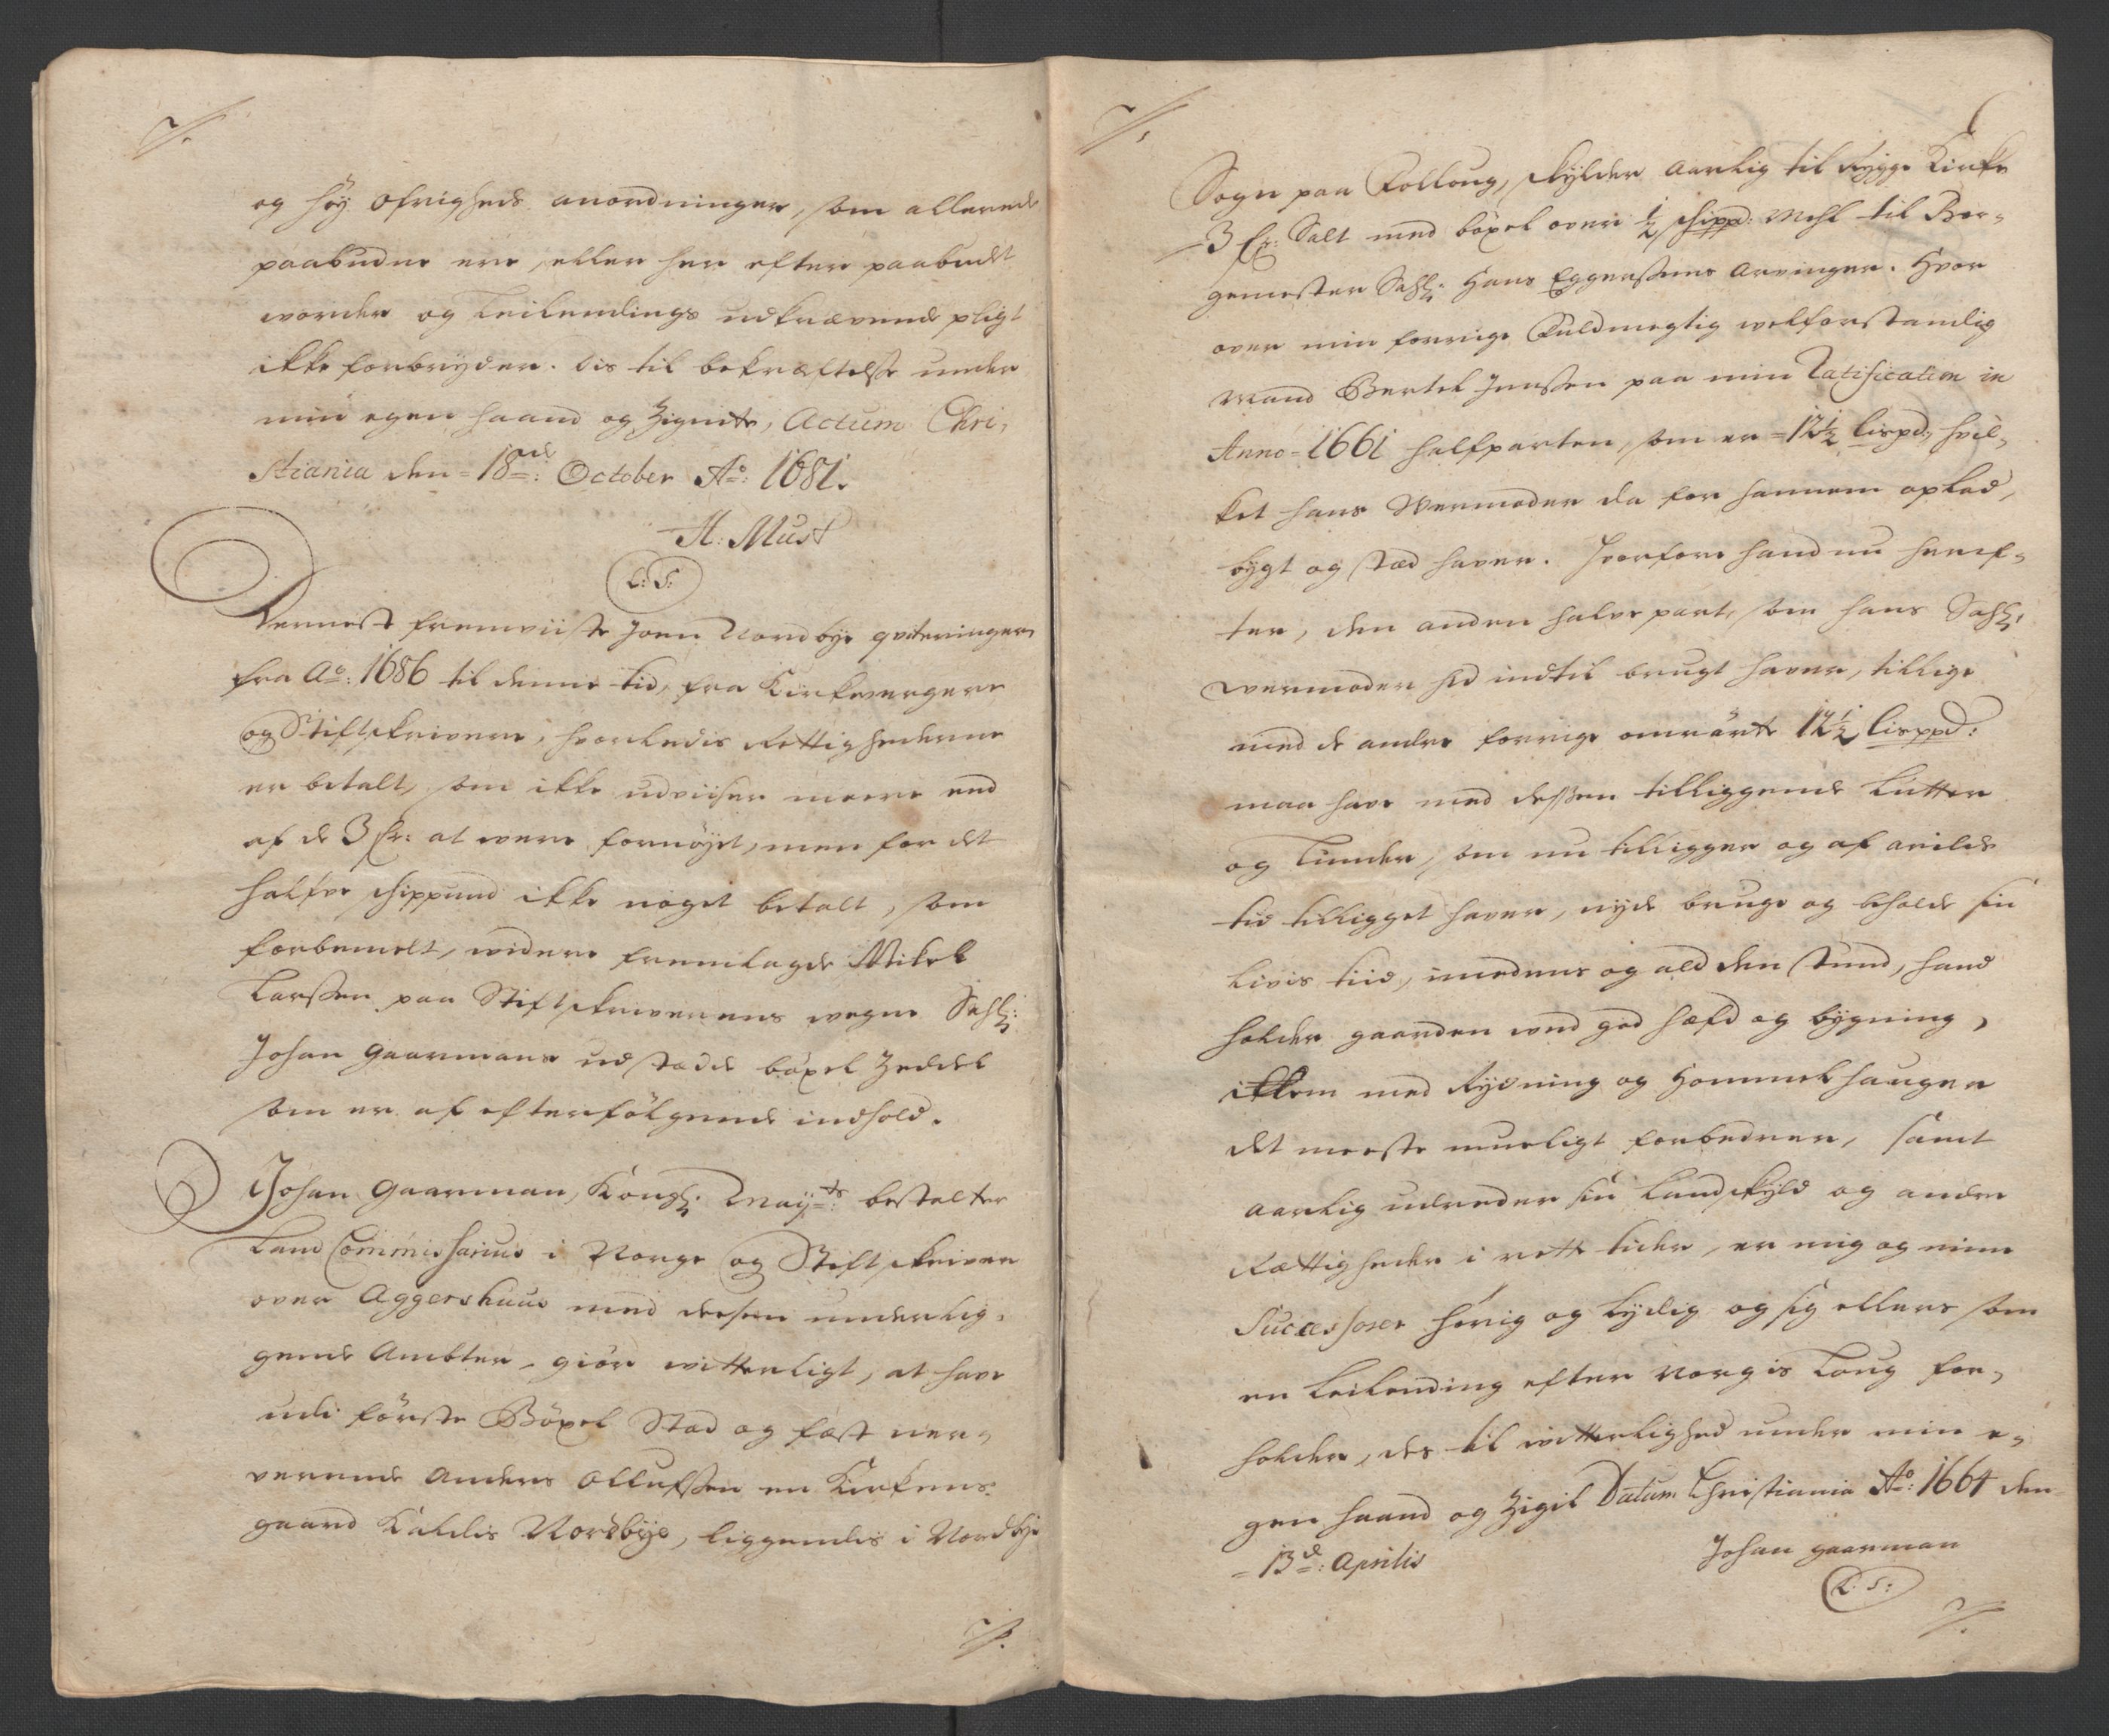 og høy øfrigheds anordninger, som allerede
paabudne ere, eller her efter paabudt
vorder og Leilendings udkrævende pligt
ikke forbryder. Dis til bekræftelse under
min egen haand og Zignete, Actum Chri,
stiania den = 18de: October Ao: 1681.
H: Must
L: S:
Dernest fremviiste Joen Nordbye qviteringer
fra Ao: 1686 til denne tid, fra Kirkevergere
og Stiftskrivere, hvorledis Rettighederne
er betalt, som ikke udviiser meere end
af de 3 fr: at were fornøyet, men for det
halfve schippund ikke noget betalt, som
forbemelt, widere fremlagde Mikel
Larssen paa Stiftskriverens wegne Sahl:
Johan Gaarmans udstædde bøxel Zeddel
som er af efterfølgende indhold.
Johan Gaarman, Kongl: Mayts: bestalter
Land Commissarius i Norge og Stiftskriver
over Aggershuus med dessen underlig,
gende Ambter, giør witterligt, at have
udi første Bøxel Stæd og fæst ner,
verende Anders Ollufssen en Kirkens
gaard Kaldis Nordbye, liggendis i Nordbye
Sogn paa Follaug, skylder Aarlig til Rygge Kirke
3 fr: Salt med bøxel over ½ schippd: Mehl til Bor,
gemester Sahl: Hans Eggerssøns Arvinger. Hvor
over min forrige Fuldmegtig welforstandig
Mand Bertel Jenssen paa min Ratification in
Anno = 1661 halfparten, som er = 12½ lispd:, hvil,
ket hans Wermoder da for hannem oplod,
bygt og stæd haver. Hvorfore hand nu heref,
ter, den anden halve part, som hans Sahl:
wermoder hid indtil brugt haver, tillige
med de andre forrige omrørte 12½ lisppd:
maa have med dessen tilliggende Lutter
og Lunder, som nu tilligger og af arilds
tid tilligget haver, nyde bruge og beholde sin
livis tiid, imedens og ald den stund, hand
holder gaarden wed god hæfd og bygning,
med Rydning og Hommelhauger
det meeste mueligt forbedrer, samt
Aarlig udreder sin Landskyld og andre
Rættigheder i rette tider, er mig og mine
Successorer hørig og lydig og sig ellers som
en Leilending efter Norgis Laug for,
holder, des til witterlighed under min e,
gen haand og Zigil Datum Christiania Ao: 1664 den
= 13de: Aprilis
Johan Gaarman
L: S: